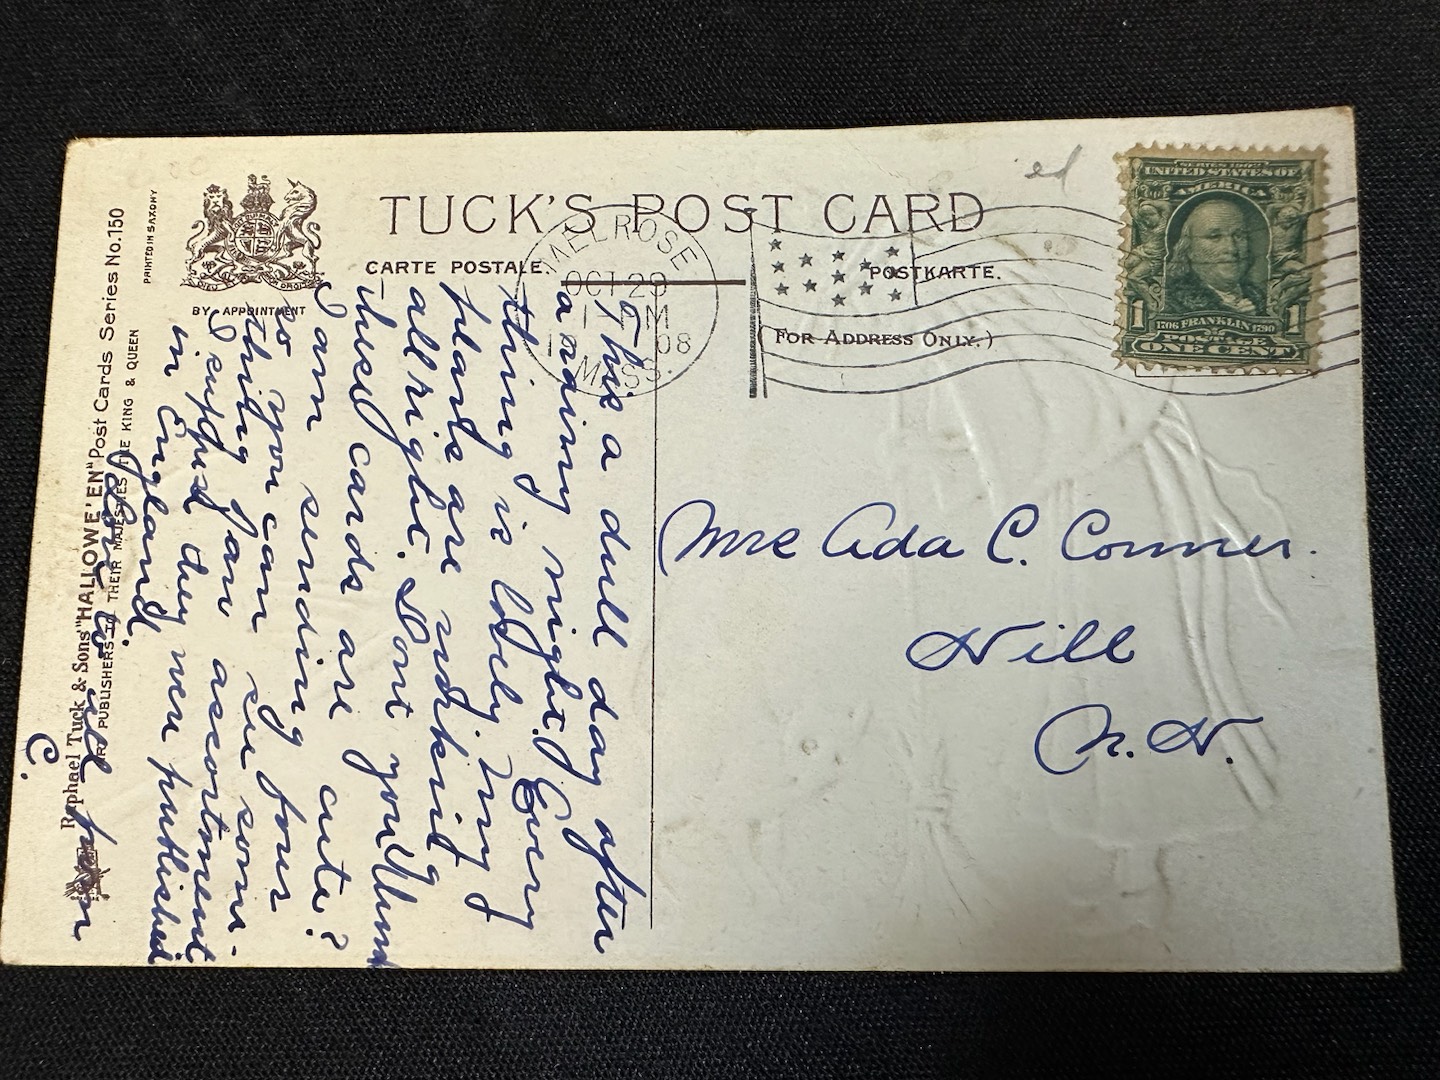 TUCK'S POST CARD
CARTE POSTALE.
POSTKARTE.
(FOR ADDRESS ONLY.)
BY APPOINTMENT
DIEU ET MON DROIT
PRINTED IN SAXONY
Raphael Tuck & Sons "HALLOWE'EN" Post Cards Series No. 150
ART PUBLISHERS TO THEIR MAJESTIES THE KING & QUEEN
MELROSE
OCT 29
1 PM
08
MASS.
SERIES 1902
UNITED STATES OF
AMERICA
1706 FRANKLIN 1790
POSTAGE
1 ONE CENT 1
ed
This a dull day after
a rainy night. Every
thing is lovely. My
plans are working
all right. Dont you think
these cards are cute?
I am sending four
so you can see some-
thing of an assortment
I suppose they were published
in England.
Love to all from
C.
Mrs Ada C. Conner.
Hill
N. H.